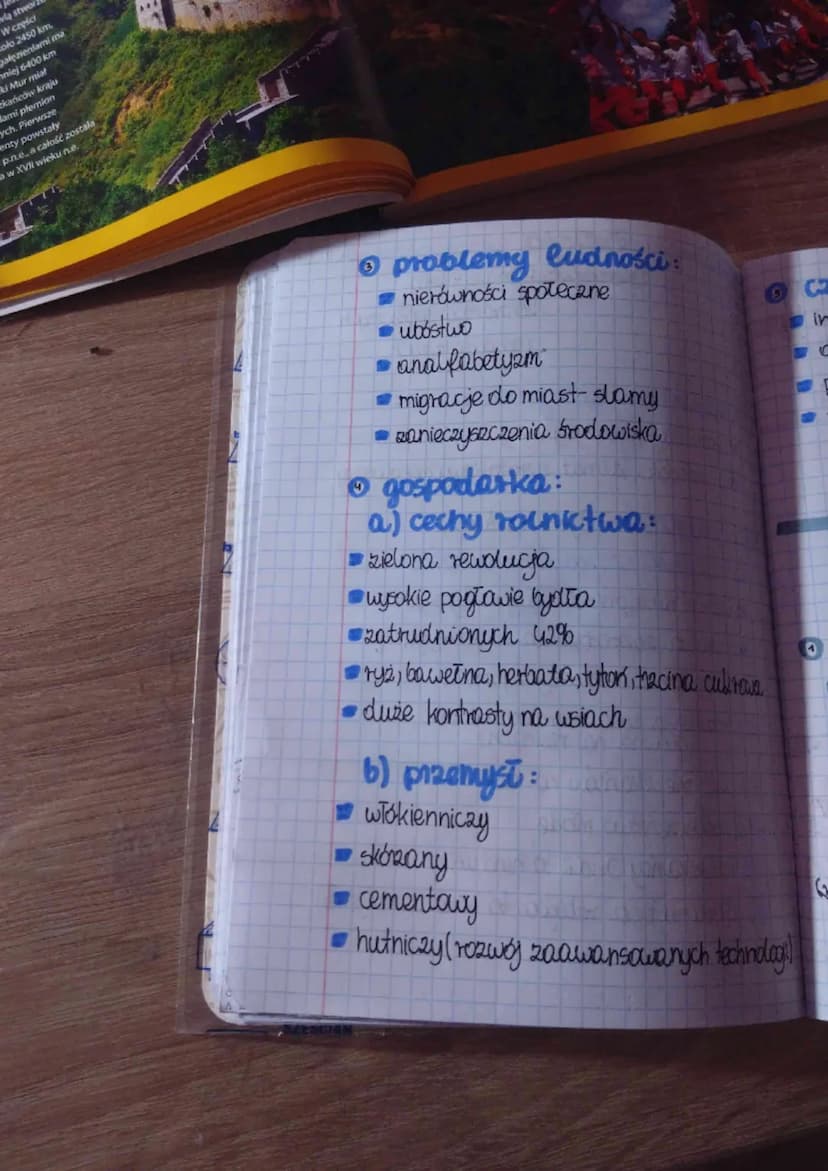 W części
około 2450 km.
6400 km
ki Mur miał
kraju
plemion
ych. Pierwsze
powstały
p.n.e., a całość została
a w XVII wieku n.e.
3 problemy ludności:
nierówności społeczne
ubóstwo
analfabetyzm
migracje do miast - slamy
zanieczyszczenia środowiska
4 gospodarka:
a) cechy rolnictwa:
zielona rewolucja
wysokie pogłowie bydła
zatrudnionych 42%
ryż, bawełna, herbata, tytoń, trzcina cukrowa
duże kontrasty na wsiach
b) przemysł:
włókienniczy
skórzany
cementowy
hutniczy (rozwój zaawansowanych technologii)
5